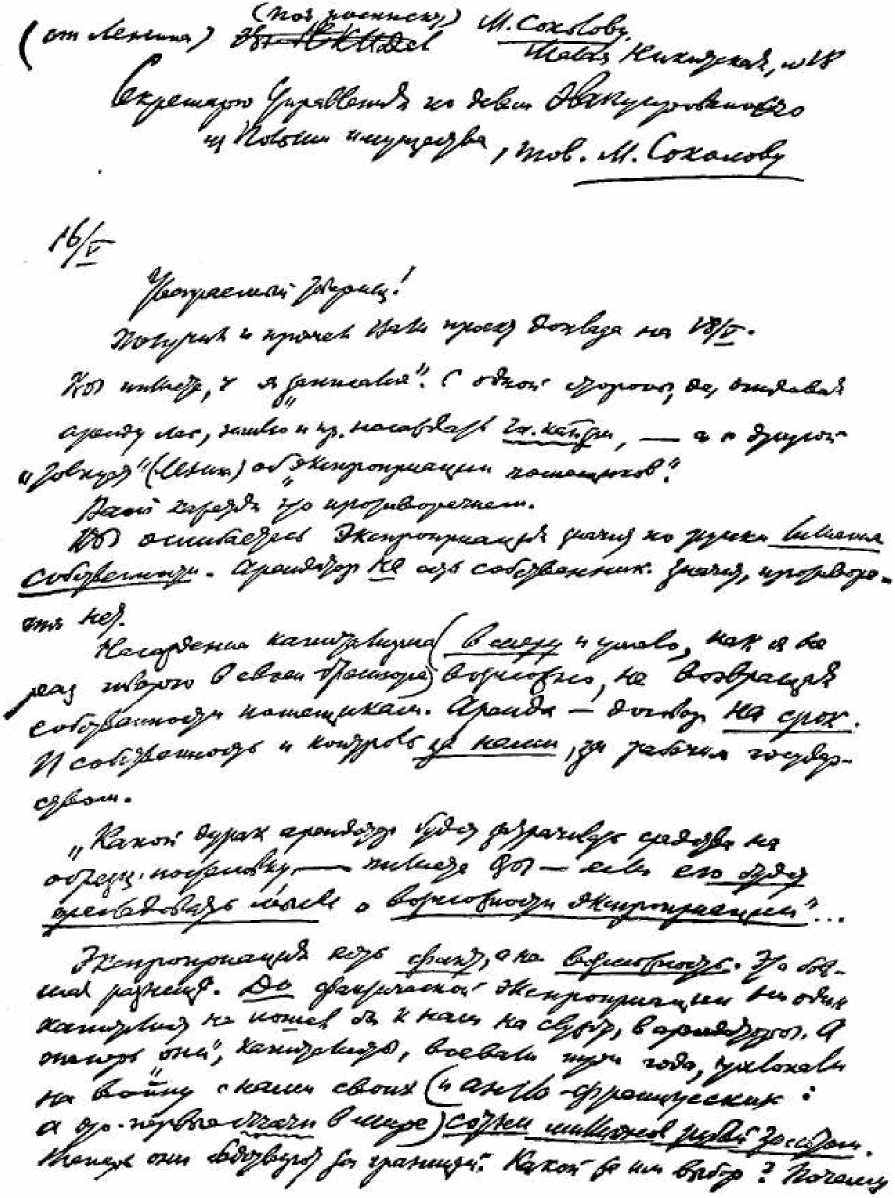 (от Ленина) (под расписку) М. Соколову
Малая Никитская, 18
Секретарю Управления по делам эвакуированного
из Польши имущества, тов. М. Соколову
16/V
Уважаемый товарищ!
Получил и прочел Ваш проект доклада на 18/V.
Вы пишете, что я "записался". С одной стороны, де, отдавая
аренду лес, землю и пр. насаждать гос. капитализм, — а с другой
"толкует" (Ленин) об "экспроприации помещиков".
Вам кажется это противоречием.
Вы ошибаетесь. Экспроприация значит по-русски лишение
собственности. Арендатор не есть собственник. Значит, противоре-
чия нет.
Насаждение капитализма (в меру и умело, как я не
раз говорю в своей брошюре) возможно, не возвращая
собственности помещикам. Аренда — договор на срок.
И собственность и контроль за нами, за рабочим государ-
ством.
"Какой дурак арендатор будет затрачивать средства на
образц. постановку — пишете Вы — если его будет
преследовать мысль о возможности экспроприации"...
Экспроприация есть факт, а не возможность. Это боль-
шая разница. До фактической экспроприации ни один
капиталист не пошел бы к нам на службу, в арендаторы. А
теперь "они", капиталисты, воевали три года, тратили
на войну с нами своих (и англо-французских:
а это первые богачи в мире) сотни миллионов рублей золотом.
Теперь они бедствуют за границей. Какой же им выбор? Почему